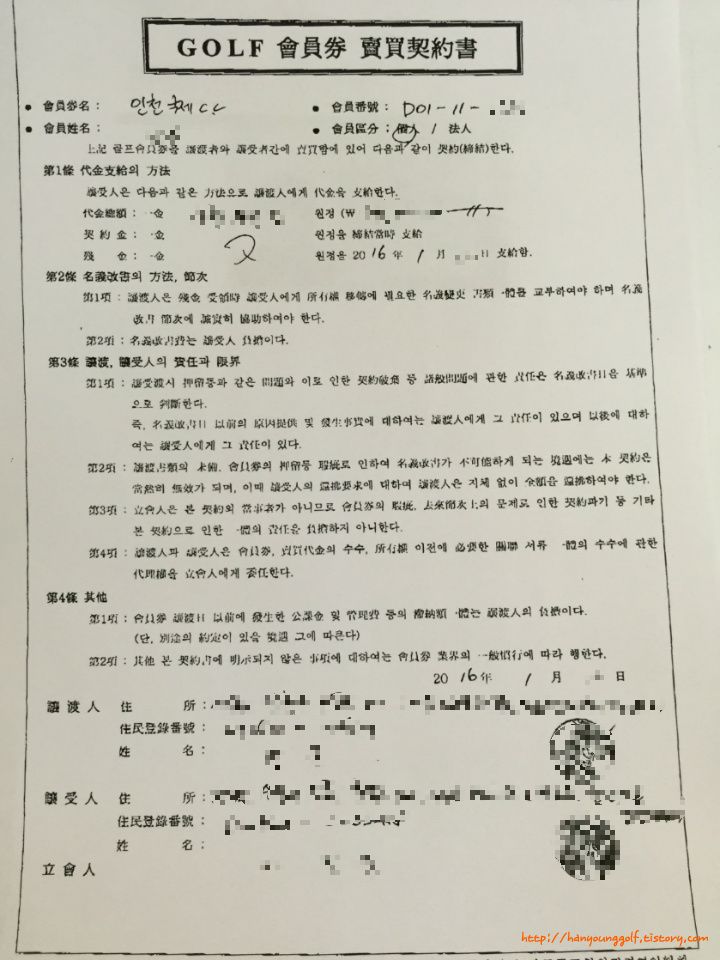 GOLF 會員券 賣買契約書
● 會員券名 : 인천국제C.C
● 會員番號 : D01-11-
● 會員姓名 :
● 會員區分 : 個人 / 法人
上記 골프會員券을 讓渡者와 讓受者간에 賣買함에 있어 다음과 같이 契約(締結)한다.
第1條 代金支給의 方法
讓受人은 다음과 같은 方法으로 讓渡人에게 代金을 支給한다.
代金總額 : 一金 원정 (₩
契約金 : 一金 원정을 締結當時 支給
殘金 : 一金 원정은 2016年 1月 日 支給함.
第2條 名義改書의 方法, 節次
第1項 : 讓渡人은 殘金 受領時 讓受人에게 所有權 移轉에 필요한 名義變更 書類 一體를 교부하여야 하며 名義
改書 節次에 誠實히 協助하여야 한다.
第2項 : 名義改書費는 讓受人 負擔이다.
第3條 讓渡, 讓受人의 責任과 限界
第1項 : 讓受渡시 押留등과 같은 問題와 이로 인한 契約破棄 등 諸般問題에 관한 責任은 名義改書日을 基準
으로 判斷한다.
즉, 名義改書日 以前의 原因提供 및 發生事實에 대하여는 讓渡人에게 그 責任이 있으며 以後에 대하
여는 讓受人에게 그 責任이 있다.
第2項 : 讓渡書類의 未備, 會員券의 押留등 瑕疵로 인하여 名義改書가 不可能하게 되는 境遇에는 本 契約은
當然히 無效가 되며, 이때 讓受人의 還拂要求에 대하여 讓渡人은 지체 없이 金額을 還拂하여야 한다.
第3項 : 立會人은 本 契約의 當事者가 아니므로 會員券의 瑕疵, 去來節次上의 문제로 인한 契約파기 등 기타
본 契約으로 인한 一體의 責任을 負擔하지 아니한다.
第4項 : 讓渡人과 讓受人은 會員券, 賣買代金의 수수, 所有權 이전에 必要한 關聯 서류 一體의 수수에 관한
代理權을 立會人에게 委任한다.
第4條 其他
第1項 : 會員券 讓渡日 以前에 發生한 公課金 및 管理費 등의 滯納額 一體는 讓渡人의 負擔이다.
(단, 別途의 約定이 있을 境遇 그에 따른다)
第2項 : 其他 本 契約書에 明示되지 않은 事項에 대하여는 會員券 業界의 一般慣行에 따라 행한다.
2016年 1月 日
讓渡人 住 所 :
住民登錄番號 :
姓 名 :
讓受人 住 所 :
住民登錄番號 :
姓 名 :
立會人
http://hanyounggolf.tistory.com